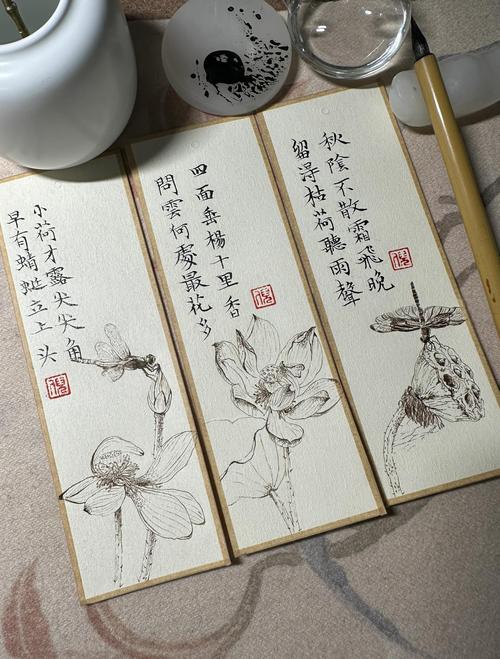 秋陰不散霜飛晚
留得枯荷聽雨聲
四面垂楊十里香
問雲何處最花多
小荷才露尖尖角
早有蜻蜓立上头